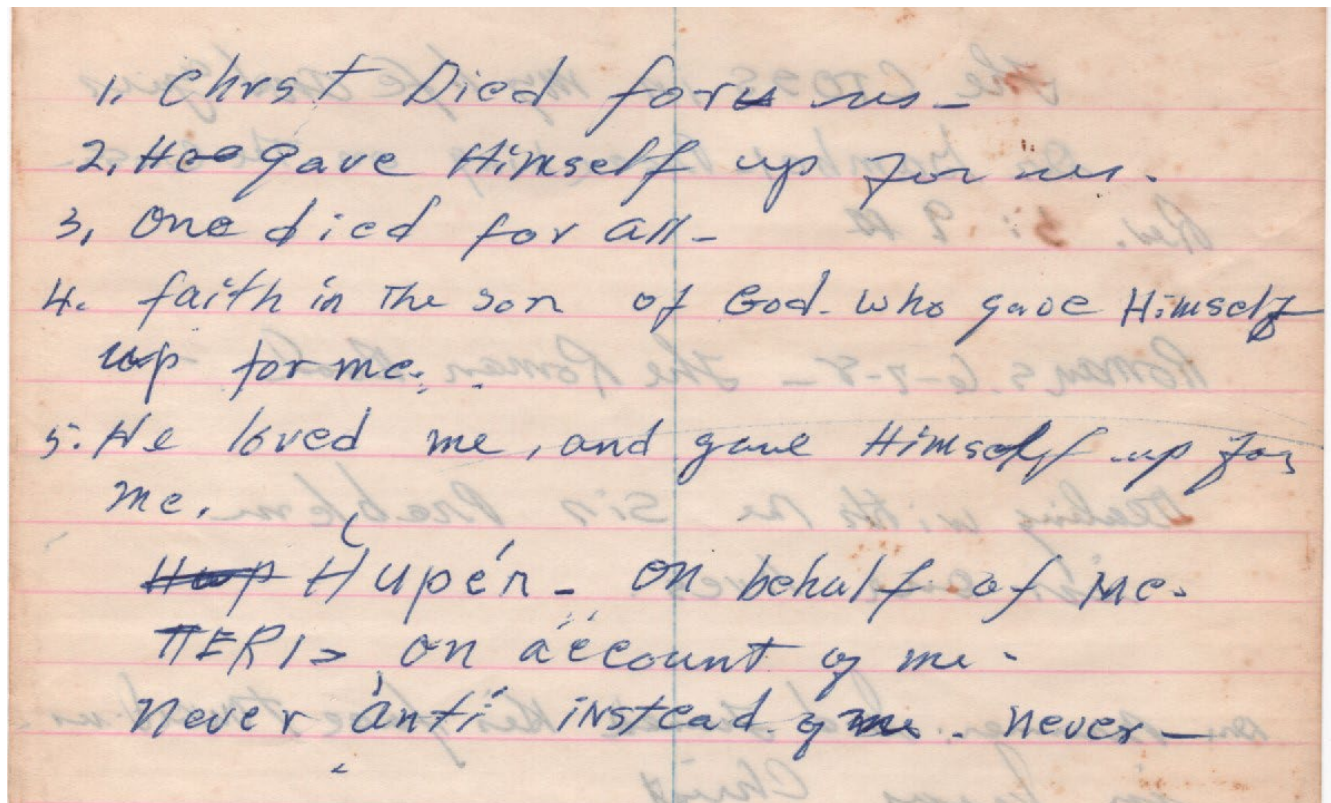 1, Chrst Died for us -
2, He gave Himself up for us.
3, One died for all -
4. faith in The son of God. who gave Himself
up for me.
5. He loved me, and gave Himself up for
me.
Hupér - on behalf of Me.
ΠERI = on account of me -
Never anti instead of me - Never -